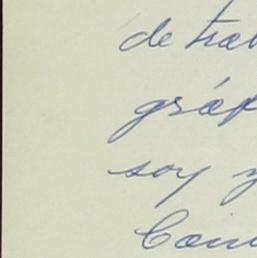 de trab
gráf
soy y
Com